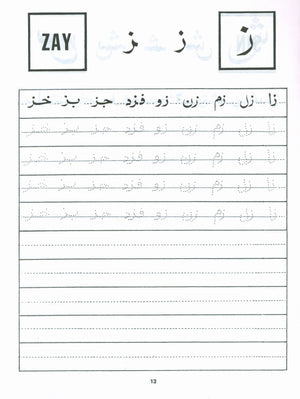 ز ز ـز ZAY
زا زل زم زن زو فزد جز بز خز
زا زل زم زن زو فزد جز بز خز
زا زل زم زن زو فزد جز بز خز
زا زل زم زن زو فزد جز بز خز
زا زل زم زن زو فزد جز بز خز
13